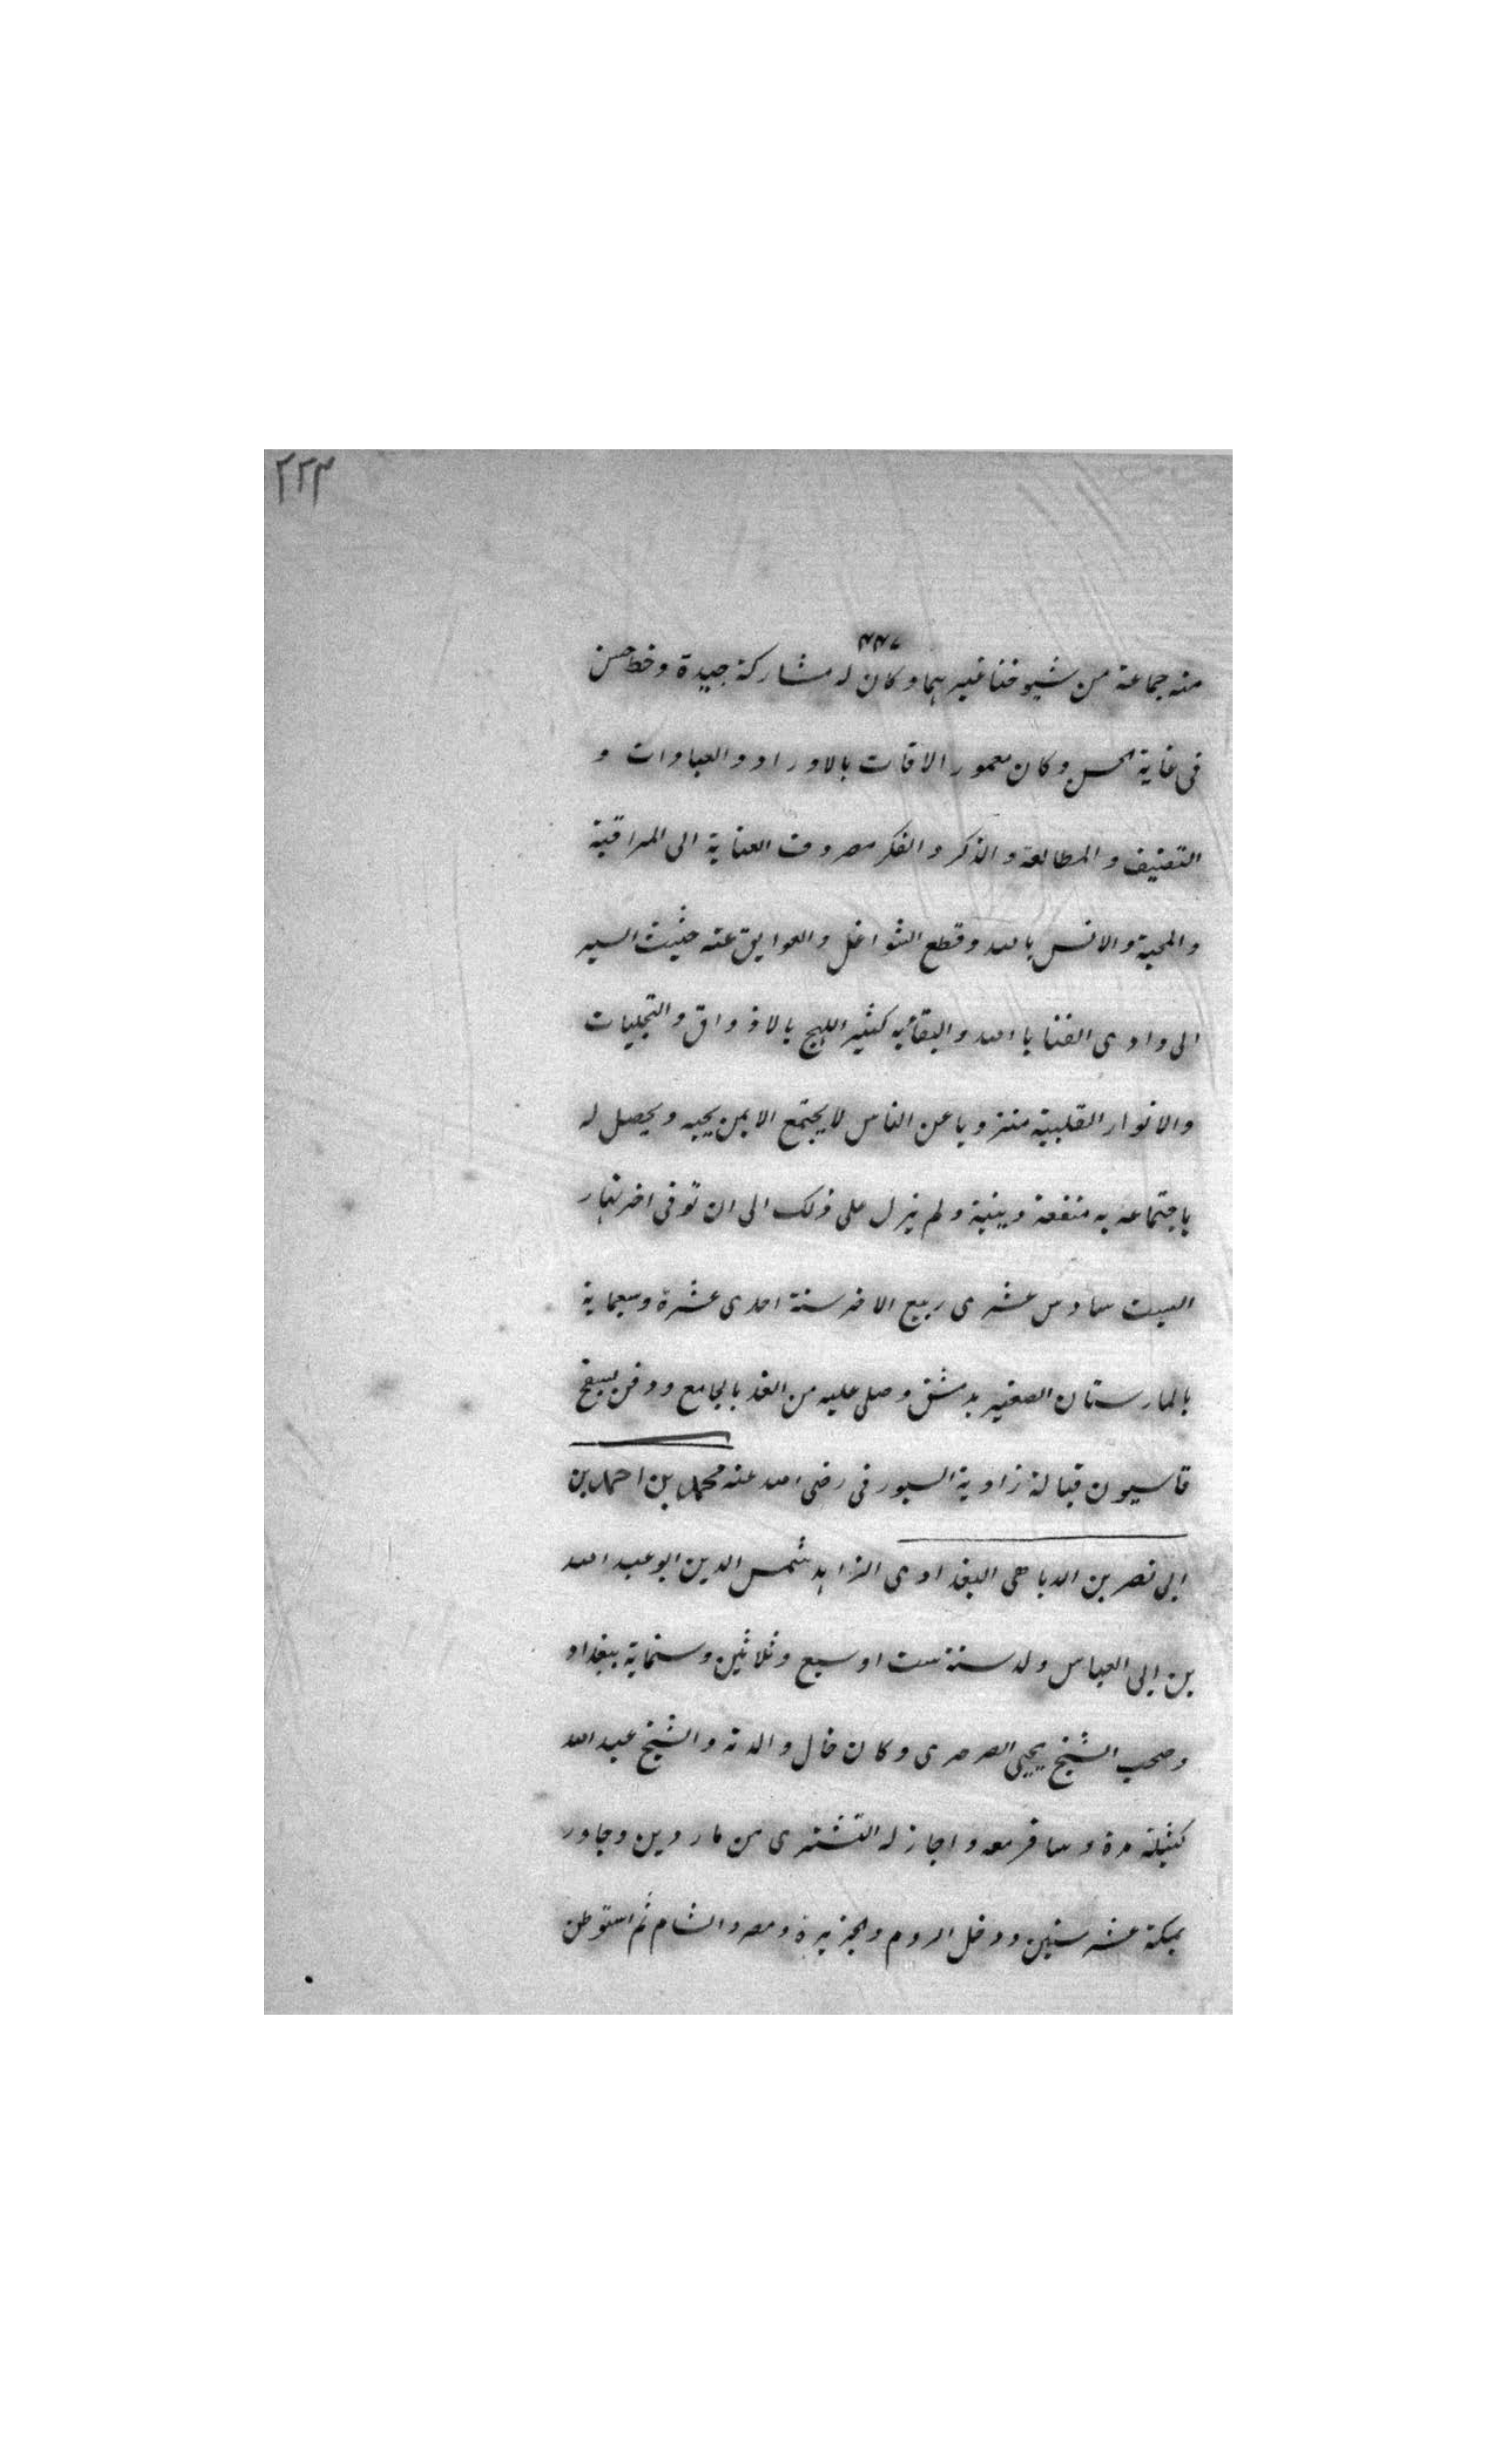 ٢٢٣
٤٤٧
منه جماعة من شيوخنا غيرهما وكان له مشاركة جيدة وخط حسن
فى غاية الحسن وكان معمور الاقات بالاوراد والعبادات و
التصنيف والمطالعة والذكر والفكر مصروف العناية الى المراقبة
والمحبة والانس بالله وقطع الشواغل والعوايق عنه حثيث السير
الى وادى الفنا بالله والبقائيه كثير اللهج بالاذواق والتجليات
والانوار القلبية منزويا عن الناس لا يجتمع الا بمن يحبه ويحصل له
باجتماعه به منفعة دينية ولم يزل على ذلك الى ان توفى اخر نهار
السبت سادس عشرى ربيع الاخر سنة احدى عشرة وسبعماية
بالمارستان الصغير بدمشق وصلى عليه من الغد بالجامع ودفن بسفح
قاسيون قبالة زاوية السيورفى رضى الله عنه محمد بن احمد بن
ابى نصر بن الدباهى البغدادى الزاهد شمس الدين ابو عبد الله
بن ابى العباس ولد سنة ست او سبع وثلاثين وستماية ببغداد
وصحب الشيخ يحيى الصرصرى وكان خال والدته والشيخ عبد الله
كتيلة مدة وسافر معه واجاز له التشترى من ماردين وجاور
بمكة عشر سنين ودخل الروم والجزيرة ومصر والشام ثم استوطن